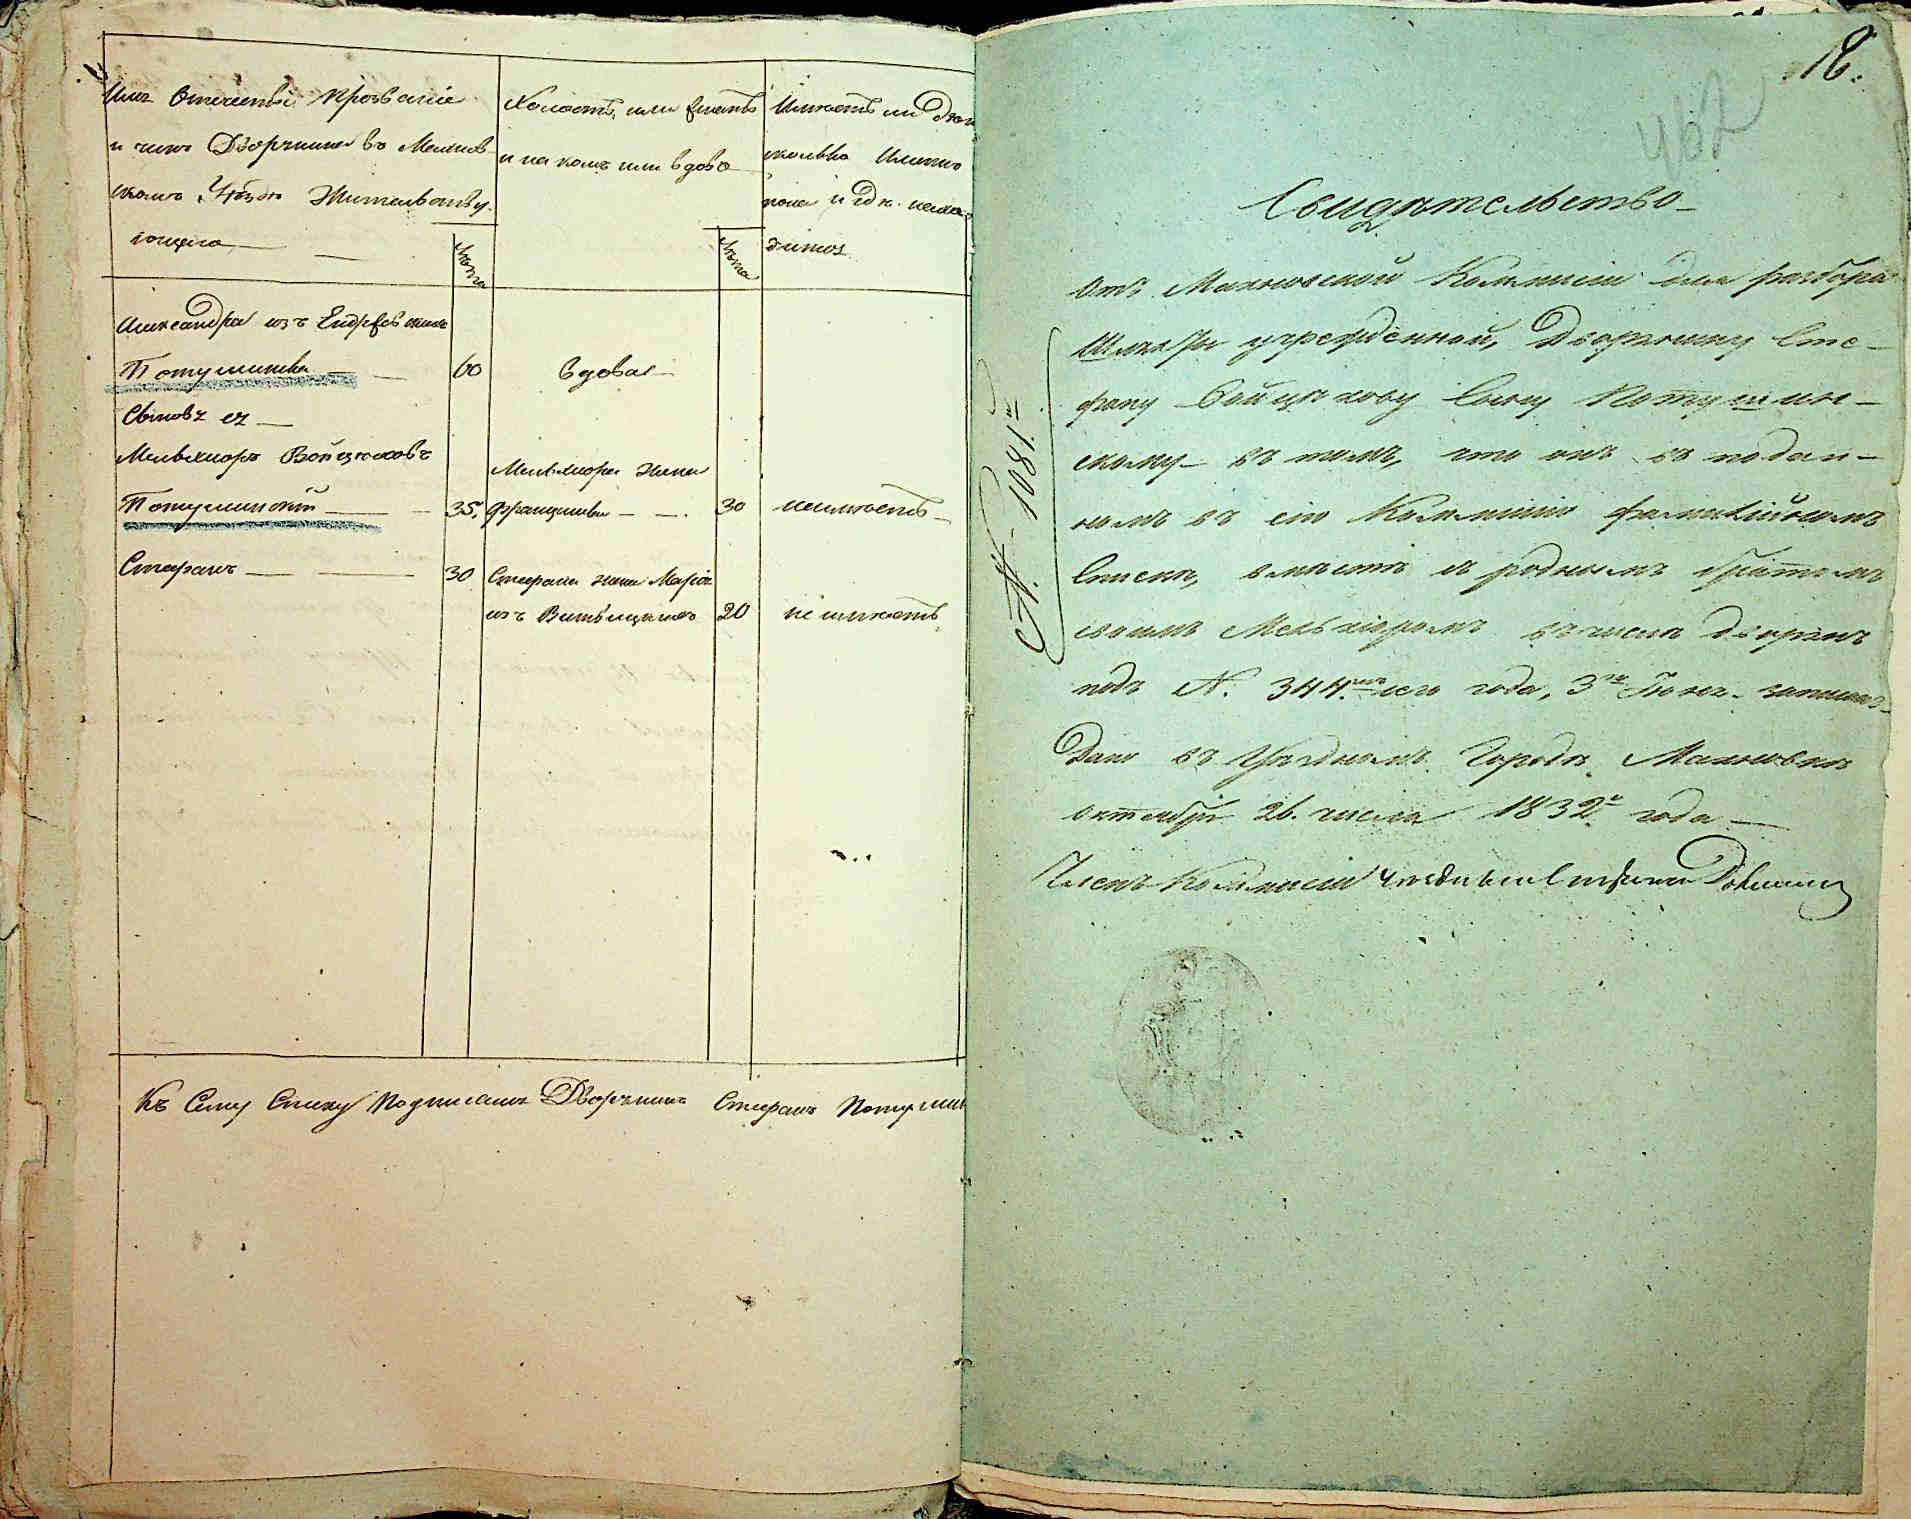 Имя Отечество Прозваніе
и чинъ Дворянина въ Махнов
скомъ Уѣздѣ Жительству
ющаго
Лѣта
Холостъ, или женатъ
и на комъ или вдовъ
Лѣта
Имѣетъ ли
сколько
пола и гдѣ
Александра изъ
Потушинска 60 вдова
Сыновъ ея
Мельхиоръ Войцѣховъ
Потушинскій 35.
Мельхиора жена
Францишка 30 неимѣетъ
Стефанъ 30
Стефана жена Марія
изъ 20 не имѣетъ
Къ Сему Списку Подписался Дворянинъ Стефанъ Потушин
18.
462
Свидѣтельство
N. 1081.
Отъ Махновской Коммисіи для разбора
Шляхты учрежденной, Дворянину Сте-
фану Войцѣхову Сыну Потушин-
скому въ томъ, что онъ въ подан-
номъ въ сію Коммисію фамилійномъ
Спискѣ, вмѣстѣ съ роднымъ братомъ
своимъ Мельхіоромъ въ число дворянъ
подъ N. 344. сего года, записанъ
Дано въ Уѣздномъ Городѣ Махновкѣ
октября 26. числа 1832 года
Членъ Коммисіи